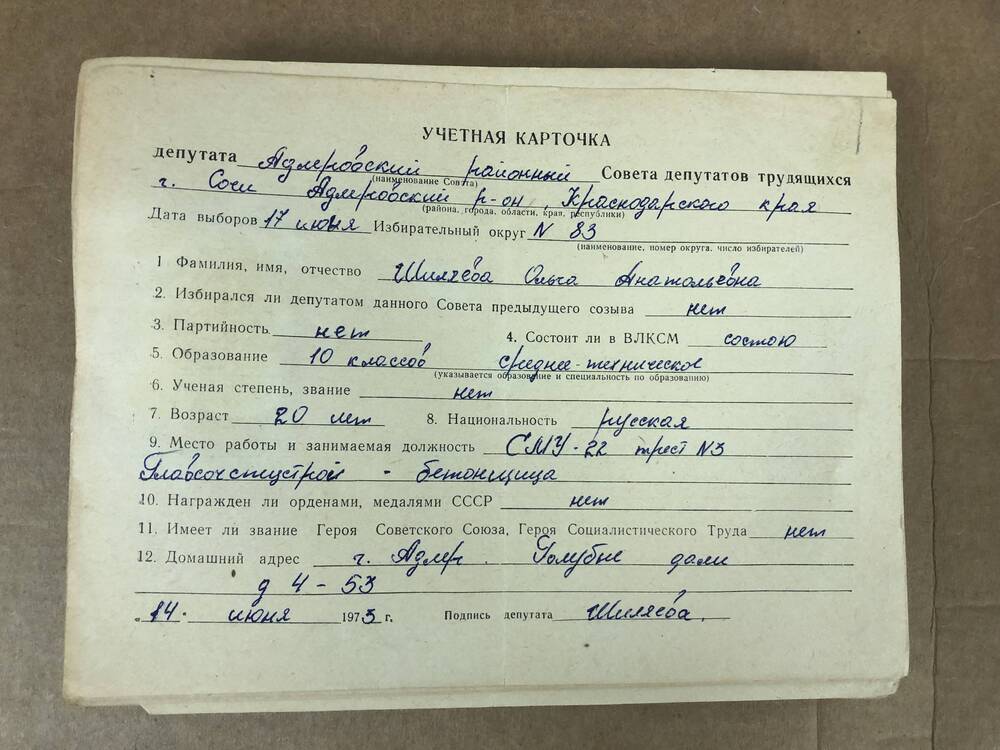 УЧЕТНАЯ КАРТОЧКА
депутата Адлеровский районный Совета депутатов трудящихся
(наименование Совета)
г. Сочи Адлеровский р-он, Краснодарского края
(района, города, области, края, республики)
Дата выборов 17 июня Избирательный округ N 83
(наименование, номер округа, число избирателей)
1 Фамилия, имя, отчество Шиляева Ольга Анатольевна
2. Избирался ли депутатом данного Совета предыдущего созыва нет
3. Партийность нет 4. Состоит ли в ВЛКСМ состою
5. Образование 10 классов средне-техническое
(указывается образование и специальность по образованию)
6. Ученая степень, звание нет
7. Возраст 20 лет 8. Национальность русская
9. Место работы и занимаемая должность СМУ-22 трест N3
Главсочиспецстрой - бетонщица
10. Награжден ли орденами, медалями СССР нет
11. Имеет ли звание Героя Советского Союза, Героя Социалистического Труда нет
12. Домашний адрес г. Адлер. Голубые дали
д 4 - 53
"14" июня 1973 г. Подпись депутата Шиляева.